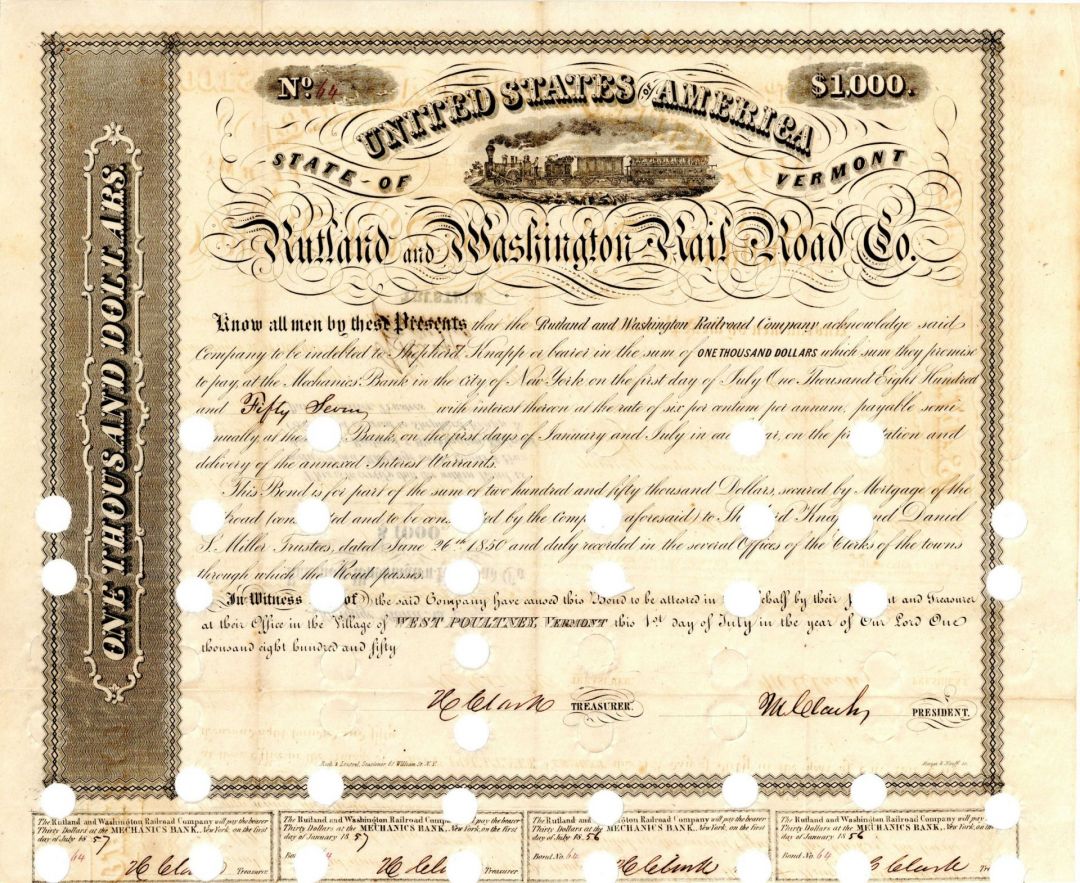 No. 64
$1,000.
UNITED STATES OF AMERICA
STATE OF VERMONT
Rutland and Washington Rail Road Co.
ONE THOUSAND DOLLARS.
Know all men by these Presents that the Rutland and Washington Railroad Company acknowledge said
Company to be indebted to Shepherd Knapp or bearer in the sum of ONE THOUSAND DOLLARS which sum they promise
to pay, at the Mechanics Bank in the city of New York on the first day of July One Thousand Eight Hundred
and Fifty Seven with interest thereon at the rate of six per centum per annum, payable semi
annually, at the Bank, on the first days of January and July in each year, on the presentation and
delivery of the annexed Interest Warrants.
This Bond is for part of the sum of two hundred and fifty thousand Dollars, secured by Mortgage of the
road (constructed and to be constructed by the Company aforesaid) to Shepherd Knapp and Daniel
S. Miller Trustees, dated June 26th 1850 and duly recorded in the several Offices of the Clerks of the towns
through which the Road passes.
In Witness of, the said Company have caused this Bond to be attested in behalf by their President and Treasurer
at their Office in the Village of WEST POULTNEY, VERMONT this 1st day of July in the year of Our Lord One
thousand eight hundred and fifty
H Clark TREASURER. M Clark PRESIDENT.
Stationer, 67 William St. N.Y.
The Rutland and Washington Railroad Company will pay the bearer
Thirty Dollars at the MECHANICS BANK, New York, on the first
day of July 1857
64 H Clark Treasurer.
The Rutland and Washington Railroad Company will pay the bearer
Thirty Dollars at the MECHANICS BANK, New York, on the first
day of January 1857
H Clark Treasurer
The Rutland and Washington Railroad Company will pay the bearer
Thirty Dollars at the MECHANICS BANK, New York, on the first
day of July 1856
Bond No. 64 H Clark Treasurer
The Rutland and Washington Railroad Company will pay the bearer
Thirty Dollars at the MECHANICS BANK, New York, on the first
day of January 1856
Bond No. 64 H Clark